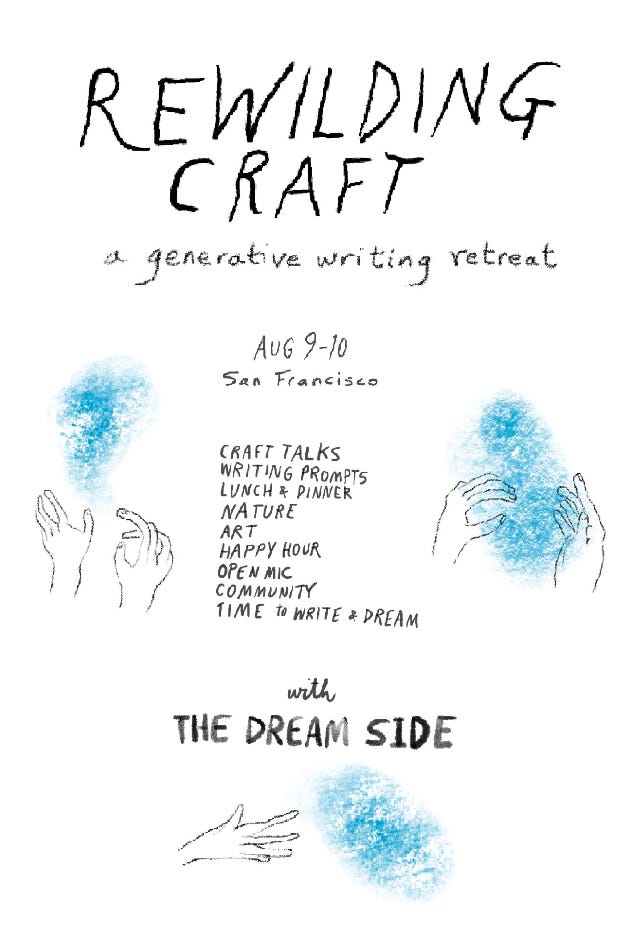 REWILDING
CRAFT
a generative writing retreat
AUG 9-10
San Francisco
CRAFT TALKS
WRITING PROMPTS
LUNCH & DINNER
NATURE
ART
HAPPY HOUR
OPEN MIC
COMMUNITY
TIME to WRITE & DREAM
with
THE DREAM SIDE